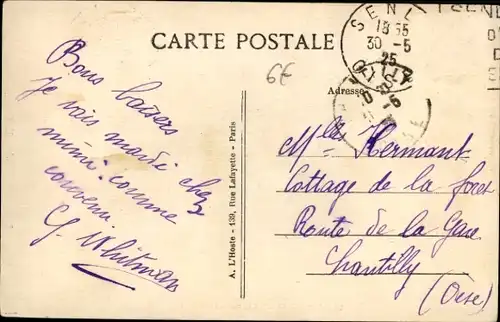 CARTE POSTALE
SENL
18 35
30 -5
25
OISE
SENL
6€
Adresse
Bons baisers
Je vais mardi chez
mimi comme
convenu
G Whitman
A. L'Hoste - 139, Rue Lafayette - Paris
Mlles Hermant
Cottage de la foret
Route de la Gare
Chantilly
(Oise)